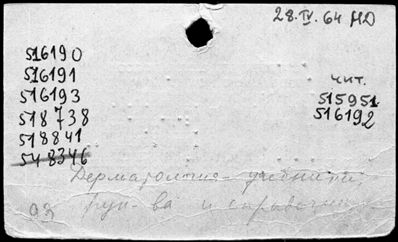 28.IV.64 НД
516190
516191
516193
518738
518841
548346
чит.
515951
516192
Дерматология – учебники,
рук-ва и справочник
93